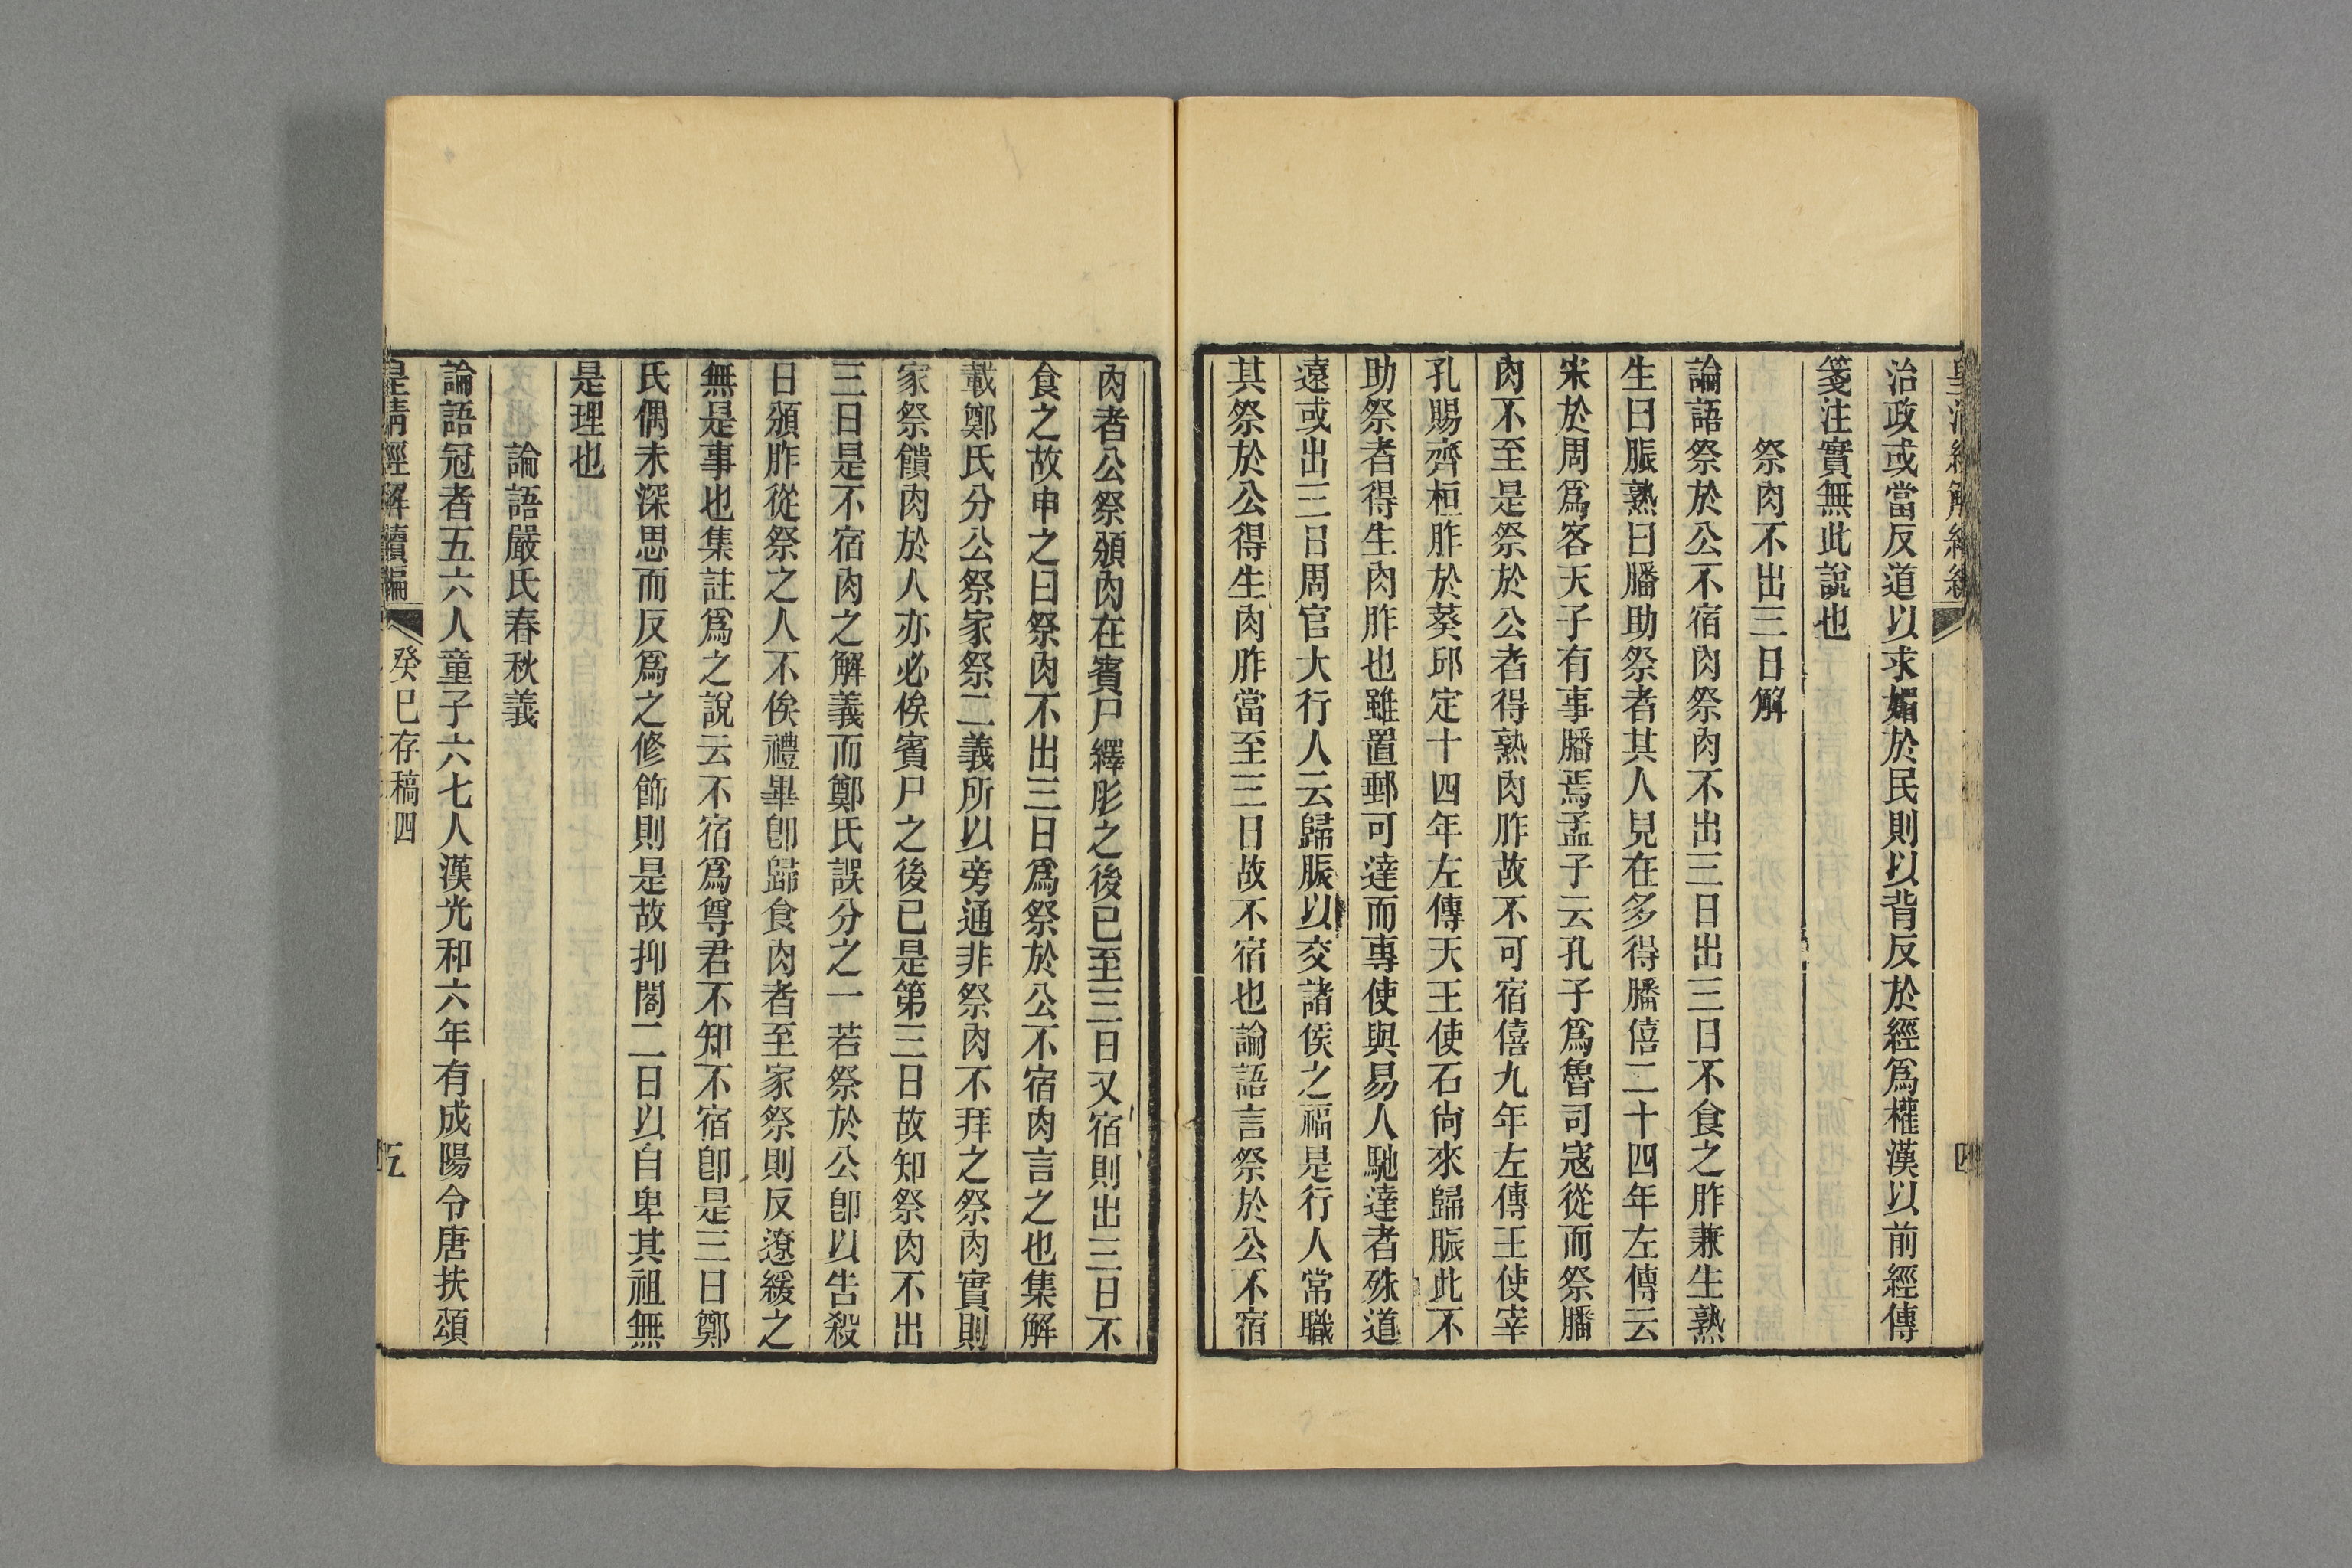 治政或當反道以求媚於民則以背反於經爲權漢以前經傳
箋注實無此說也
祭肉不出三日解
論語祭於公不宿肉祭肉不出三日出三日不食之胙兼生熟
生曰脤熟曰膰助祭者其人見在多得膰僖二十四年左傳云
宋於周爲客天子有事膰焉孟子云孔子爲魯司寇從而祭膰
肉不至是祭於公者得熟肉胙故不可宿僖九年左傳王使宰
孔賜齊桓胙於葵邱定十四年左傳天王使石尙來歸脤此不
助祭者得生肉胙也雖置郵可達而專使與易人馳達者殊道
遠或出三日周官大行人云歸脤以交諸侯之福是行人常職
其祭於公得生肉胙當至三日故不宿也論語言祭於公不宿
肉者公祭頒肉在賓尸繹肜之後已至三日又宿則出三日不
食之故申之曰祭肉不出三日爲祭於公不宿肉言之也集解
載鄭氏分公祭家祭二義所以旁通非祭肉不拜之祭肉實則
家祭饋肉於人亦必俟賓尸之後已是第三日故知祭肉不出
三日是不宿肉之解義而鄭氏誤分之一若祭於公卽以告殺
日頒胙從祭之人不俟禮畢卽歸食肉者至家祭則反遼緩之
無是事也集註爲之說云不宿爲尊君不知不宿卽是三日鄭
氏偶未深思而反爲之修飾則是故抑閣二日以自卑其祖無
是理也
論語嚴氏春秋義
論語冠者五六人童子六七人漢光和六年有成陽令唐扶頌
皇淸經解續編
癸巳存稿四
五